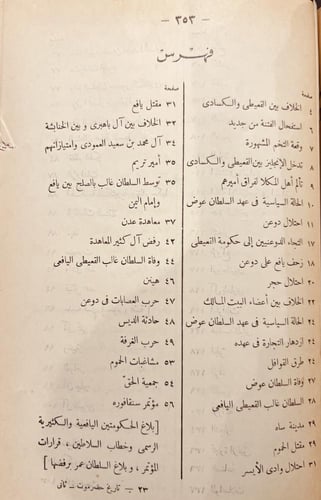 — ٣٥٣ —
فهرس
صفحة
٤ الخلاف بين القعيطي والكسادي
٦ استفحال الفتنة من جديد
٧ وقعة التخم المشهورة
٨ تدخل الإنجليز بين القعيطي والكسادي
٩ تألم أهل المكلا لفراق أميرهم
١٠ الحالة السياسية في عهد السلطان عوض
١١ احتلال دوعن
١٧ التجاء الدوعنيين إلى حكومة القعيطي
١٧ زحف يافع على دوعن
٢١ احتلال حجر
٢٢ الخلاف بين أعضاء البيت المالك
٢٤ الحالة السياسية في عهد السلطان عوض
٢٤ ازدهار التجارة في عهده
٢٤ طرق القوافل
٢٧ وفاة السلطان عوض
٢٨ السلطان غالب القعيطي اليافعي
٢٩ مدينة ساه
٣٠ مقتل الحموم
٣١ احتلال وادي الأيسر
صفحة
٣١ مقتل يافع
٣٢ الخلاف بين آل باهبري وبين الخنابشة
٣٤ آل محمد بن سعيد العمودي وامتيازاتهم
٣٥ أمير تريم
٣٥ توسط السلطان غالب بالصلح بين يافع
وإمام اليمن
٣٧ معاهدة عدن
٤٢ رفض آل كثير المعاهدة
٤٤ وفاة السلطان غالب القعيطي اليافعي
٤٦ هينن
٤٧ حرب العصابات في دوعن
٤٨ حادثة الديس
٤٩ حرب الغرفة
٥٣ مشاغبات الحموم
٥٤ جمعية الحق
٥٦ مؤتمر سنقافوره
[ بلاغ الحكومتين اليافعية والكثيرية
الرسمي وخطاب السلاطين ، قرارات
المؤتمر ، وبلاغ السلطان عمر برفضها ]
٢٣ — تاريخ حضرموت ـ ثاني